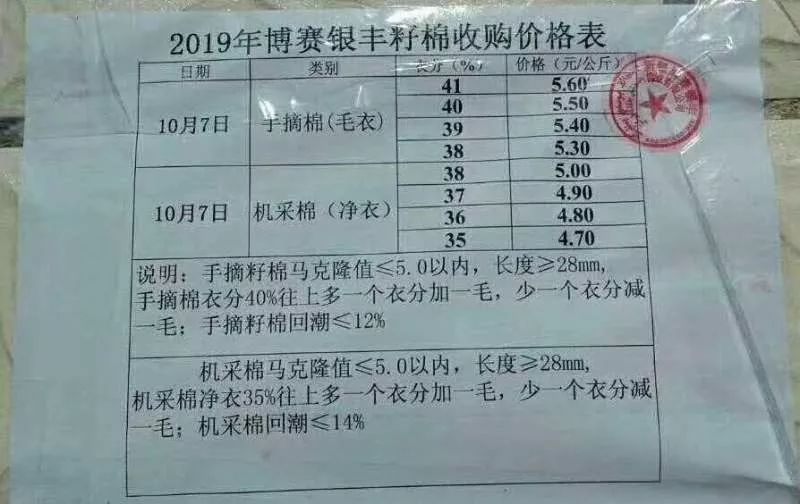 2019年博赛银丰籽棉收购价格表
日期 类别 衣分（%） 价格（元/公斤）
10月7日 手摘棉(毛衣) 41 5.60
40 5.50
39 5.40
38 5.30
10月7日 机采棉（净衣） 38 5.00
37 4.90
36 4.80
35 4.70
说明：手摘籽棉马克隆值≤5.0以内，长度≥28mm,
手摘棉衣分40%往上多一个衣分加一毛，少一个衣分减
一毛；手摘籽棉回潮≤12%
机采棉马克隆值≤5.0以内，长度≥28mm,
机采棉净衣35%往上多一个衣分加一毛，少一个衣分减
一毛；机采棉回潮≤14%